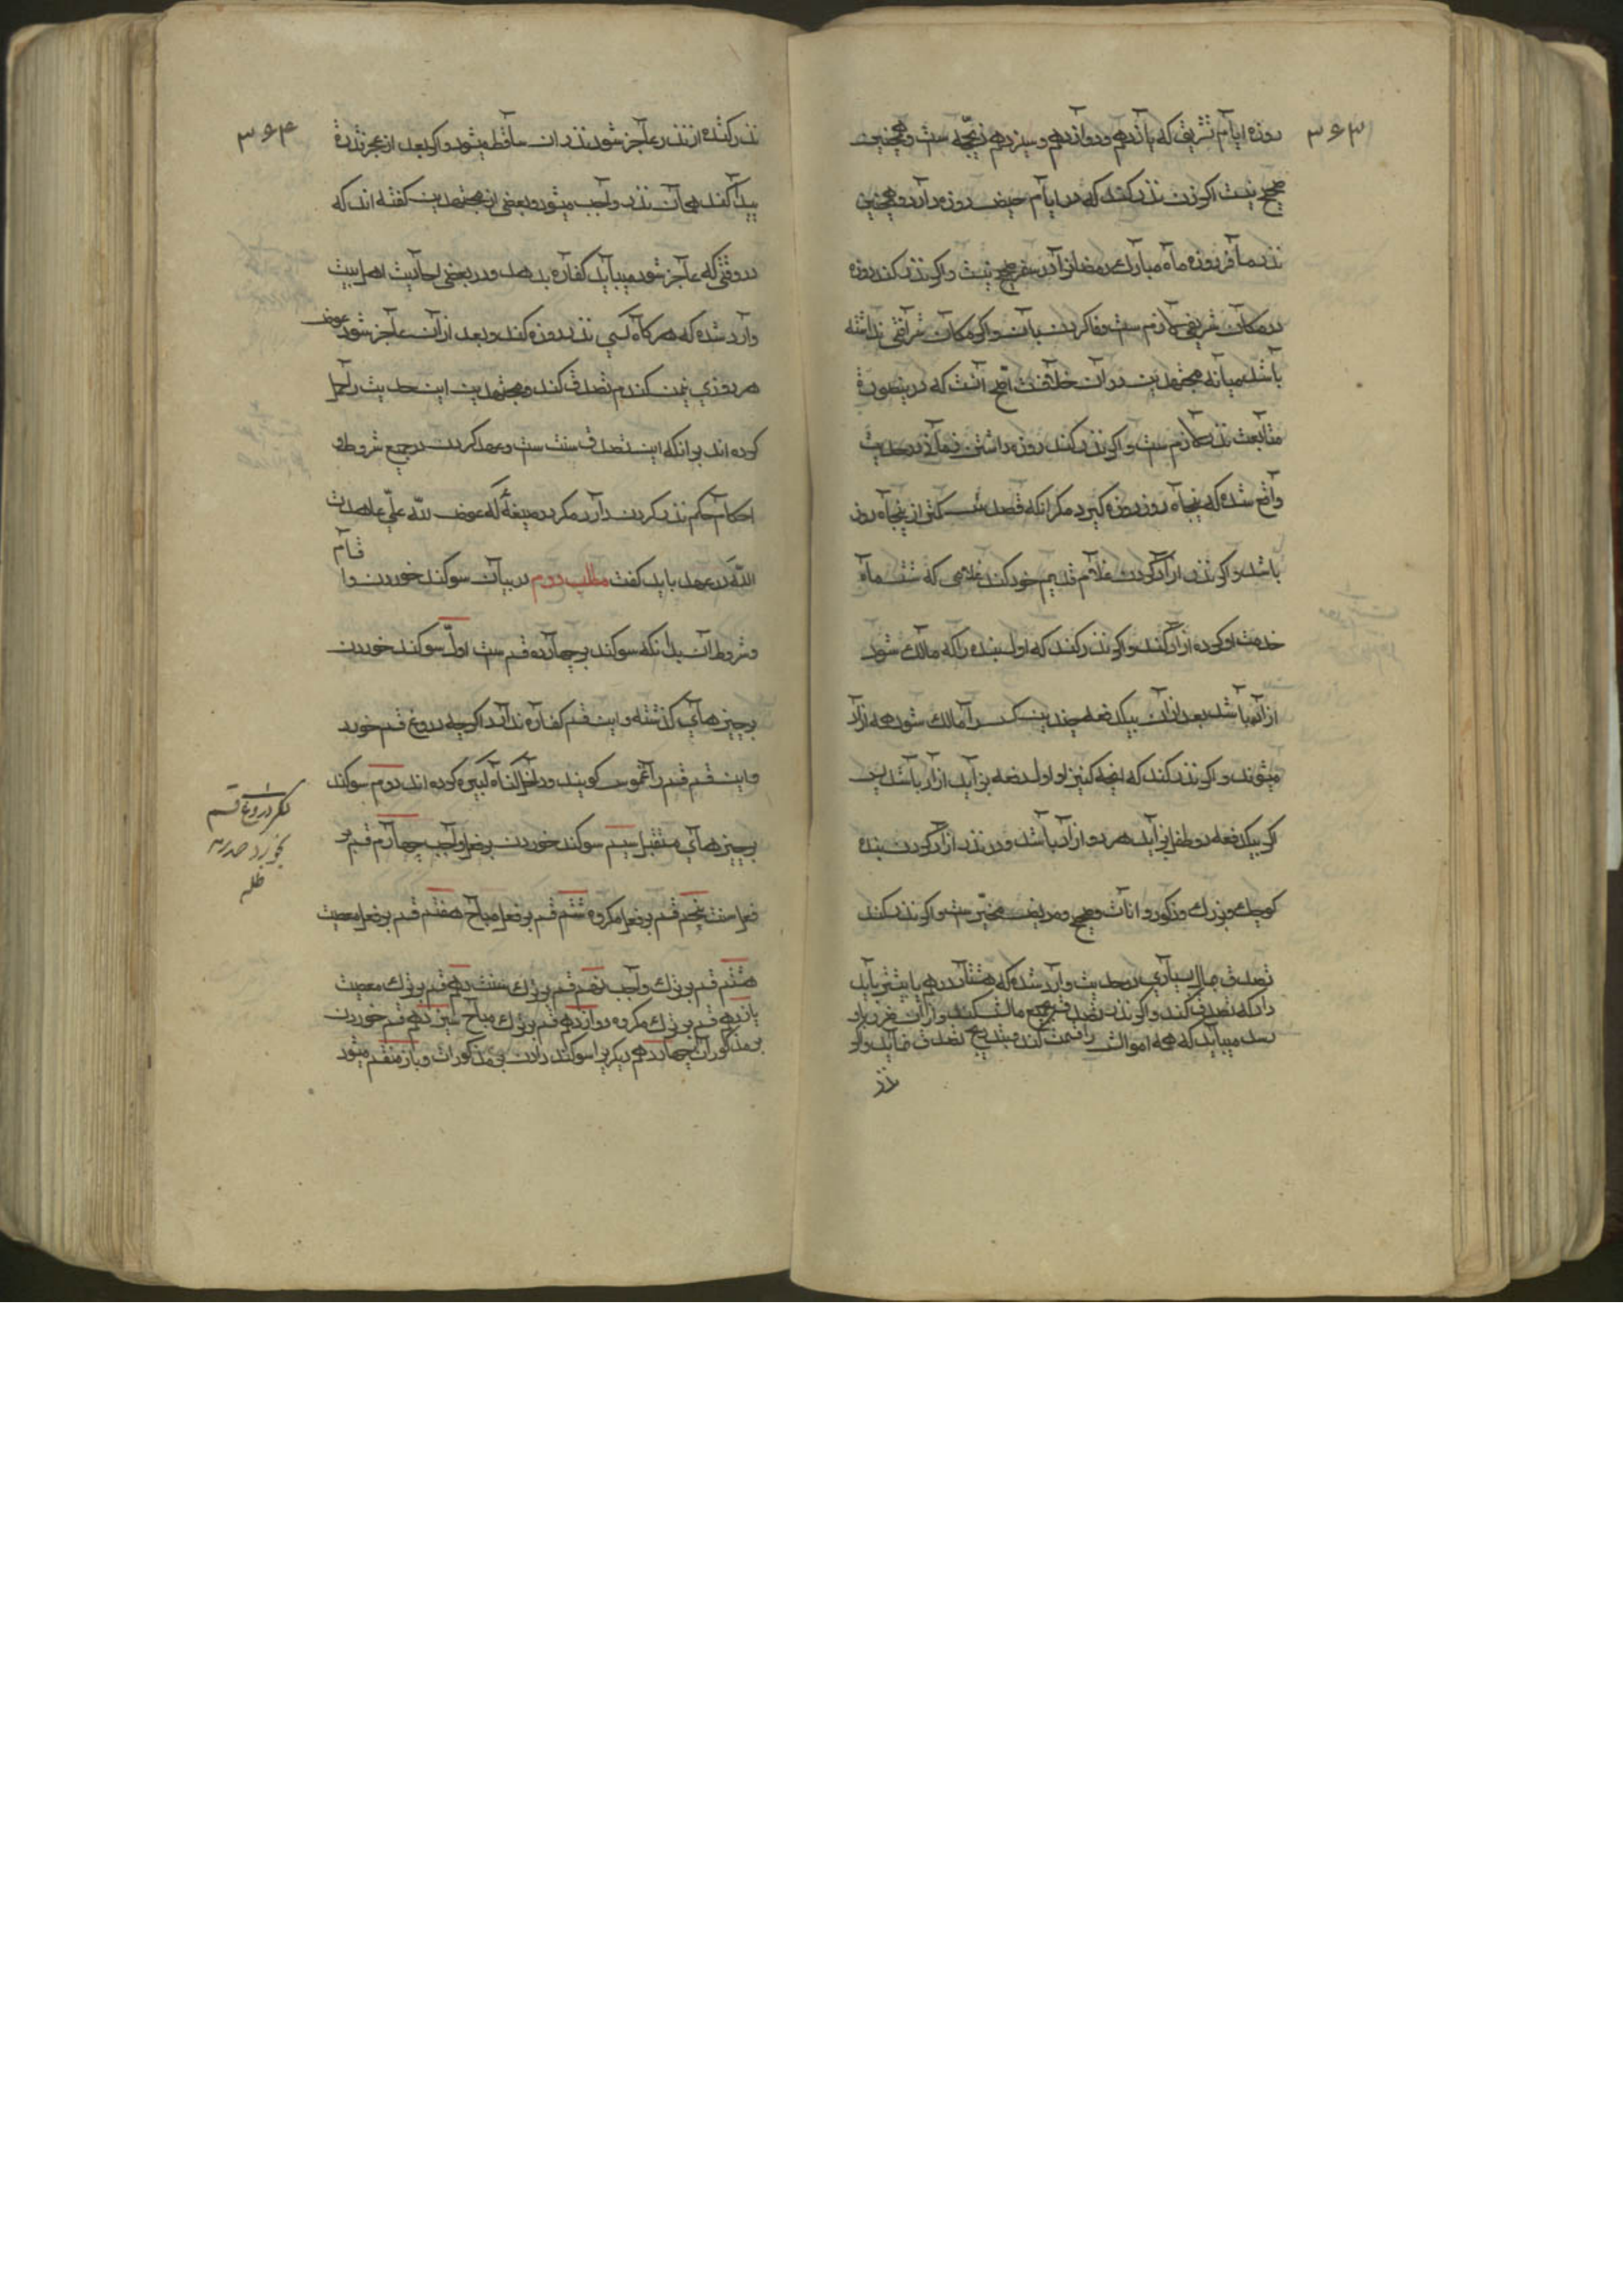 ۳۶۳
روزه ایام تشریق که یازدهم و دوازدهم و سیزدهم ذیحجه ست و همچنین
صحیح نیست اکر زن نذر کند که در ایام حیض روزه دارد و همچنین
نذر مسافر روزه ماه مبارک رمضانرا در سفر صحیح نیست و اکر نذر کند روزه
در مکان شریفی لازم ست وفا کردن بآن و اکر مکان شرافتی نداشته
باشد میانه مجتهدین در آن خلافست اصح آنست که درینصورة
متابعت نذر لازم ست و اکر نذر کند روزه داشتن زمانی در حدیث
واقع شده که پنجاه روز روزه کیرد مکر آنکه قصدش کمتر از پنجاه روز
باشد و اکر نذر آزاد کردن غلام قدیم خود کند غلامی که شش ماه
خدمت او کرده آزاد کند و اکر نذر کند که اول بنده را که مالک شود
آزاد باشد بعد از آن بیکدفعه چندین کس را مالک شود همه آزاد
میشوند و اکر نذر کند که آنچه کنیز او اول دفعه بزاید آزاد باشد پس
اکر بیکدفعه دو طفل بزاید هر دو آزاد باشد و در نذر آزاد کردن بنده
کوچک و بزرک و ذکور و اناث و صحیح و مریض مخیّر ست و اکر نذر کند
تصدق بمال بسیاری در حدیث وارد شده که هشتاد درهم یا بیشتر باید
داد که تصدق کند و اکر نذر تصدق بجمیع مالش کند و از آن ضرر باو
رسد میباید که همه اموالش را قیمت کند و بتدریج تصدق نماید و اکر
نذر
۳۶۴
نذر کننده از نذر عاجز شود نذر ان ساقط میشود و اکر بعد از عجز قدرة
پیدا کند همان نذر واجب میشود و بعضی از مجتهدین کفته اند که
در وقتی که عاجز شود میباید کفاره بدهد و در بعضی احادیث اهل بیت
وارد شده که هر کاه کسی نذر روزه کند و بعد از آن عاجز شود عوض
هر روزی یمن کندم تصدق کند و مجتهدین این حدیث را حمل
کرده اند بر انکه این تصدق سنت ست و عهد کردن در جمیع شروط و
احکام حکم نذر کردن دارد مکر در صیغه که عوض لله علیّ عاهدت
الله در عهد باید کفت مطلب دوم در بیان سوکند خوردن و اقسام
و شروط آن بدانکه سوکند بر چهارده قسم ست اول سوکند خوردن
بر چیزهای کذشته و این قسم کفاره ندارد اکرچه دروغ قسم خورد
و این قسم قسم را غموس کویند و داخل کناه کبیره کرده اند دوم سوکند
بر چیزهای مستقبل سیم سوکند خوردن بر فعل واجب چهارم قسم بر
فعل سنت پنجم قسم بر فعل مکروه ششم قسم بر فعل مباح هفتم قسم بر فعل معصیت
هشتم قسم بر ترک واجب نهم قسم بر ترک سنت دهم قسم بر ترک معصیت
یازدهم قسم بر ترک مکروه دوازدهم قسم بر ترک مباح سیزدهم قسم خوردن
بر مذکورات چهاردهم دیکریرا سوکند دادن بر مذکورات و باز منقسم میشود
مکر دروغ قسم
بخورد